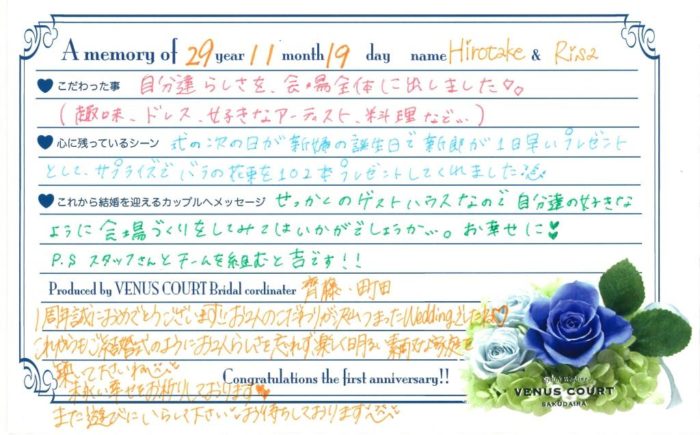 A memory of 29 year 11 month 19 day name Hirotake & Risa
こだわった事 自分達らしさを、会場全体に出しました♡♡
(趣味、ドレス、好きなアーティスト、料理など...)
心に残っているシーン 式の次の日が新婦の誕生日で新郎が1日早いプレゼント
として、サプライズでバラの花束を102本プレゼントしてくれました
これから結婚を迎えるカップルへメッセージ せっかくのゲストハウスなので自分達の好きな
ように会場づくりをしてみてはいかがでしょうか...。お幸せに♥
P.S スタッフさんとチームを組むと吉です!!
Produced by VENUS COURT Bridal cordinater 齊藤・町田
1周年誠におめでとうございます!!お2人のこだわりが沢山つまったWeddingでしたね♡
これからもご結婚式のようにお2人らしさを忘れず楽しく明るい素敵なご家庭を
築いて下さいね
末永い幸せをお祈りしております
Congratulations the first anniversary!!
また遊びにいらして下さい お待ちしております
VENUS COURT
SAKUDAIRA